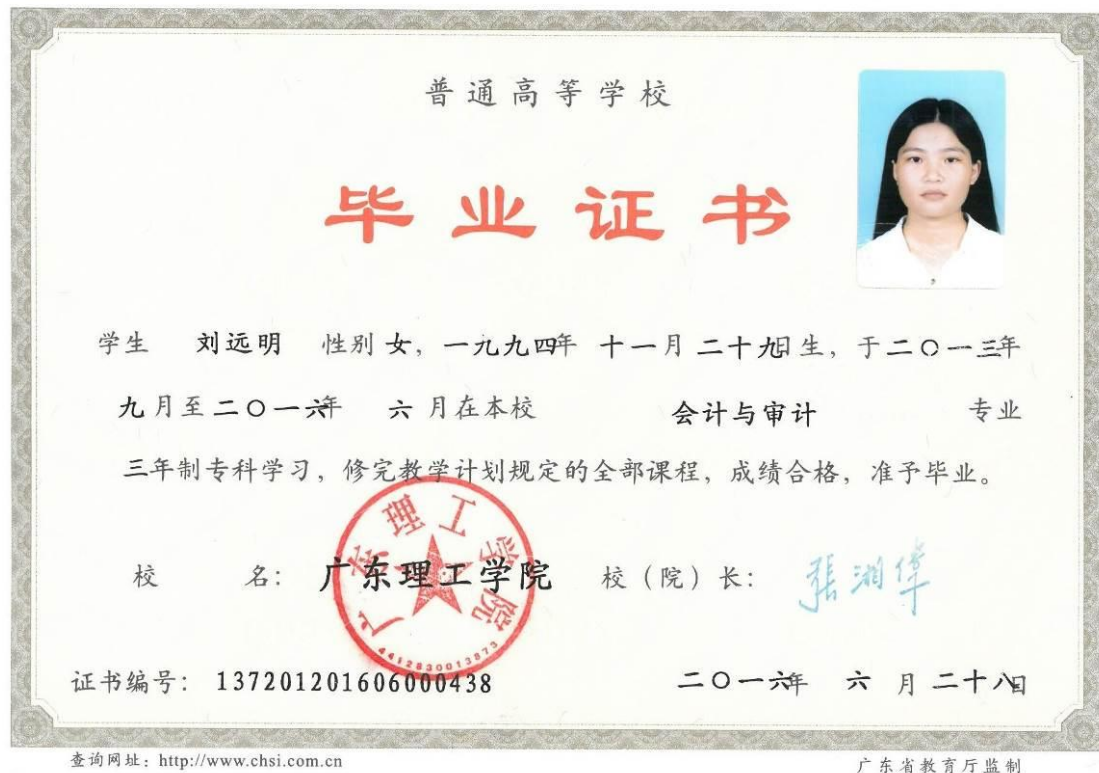 普通高等学校
毕业证书
学生 刘远明 性别 女，一九九四年 十一月 二十九日生，于二〇一三年
九月至二〇一六年 六月在本校 会计与审计 专业
三年制专科学习，修完教学计划规定的全部课程，成绩合格，准予毕业。
校 名：广东理工学院 校（院）长：張湘偉
广东理工学院
4412830013873
证书编号：137201201606000438 二〇一六年 六月 二十八日
查询网址：http://www.chsi.com.cn 广东省教育厅监制